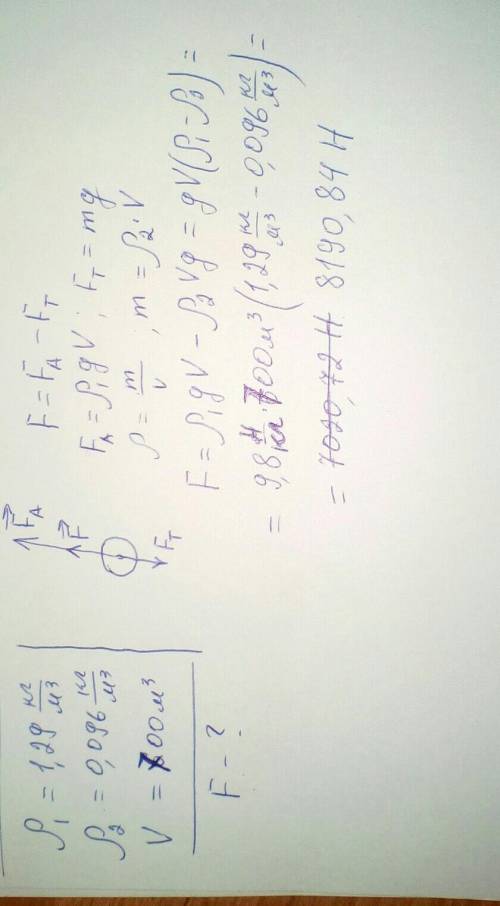 ρ₁ = 1,29 кг/м³
ρ₂ = 0,096 кг/м³
V = 700 м³
F - ?
F⃗A
F⃗
FT
F = FA - FT
FA = ρ₁gV ; FT = mg
ρ = m/v ; m = ρ₂·V
F = ρ₁gV - ρ₂Vg = gV(ρ₁ - ρ₂) =
= 9,8 Н/кг · 700 м³ (1,29 кг/м³ - 0,096 кг/м³) =
= 7020,72 Н 8190,84 Н